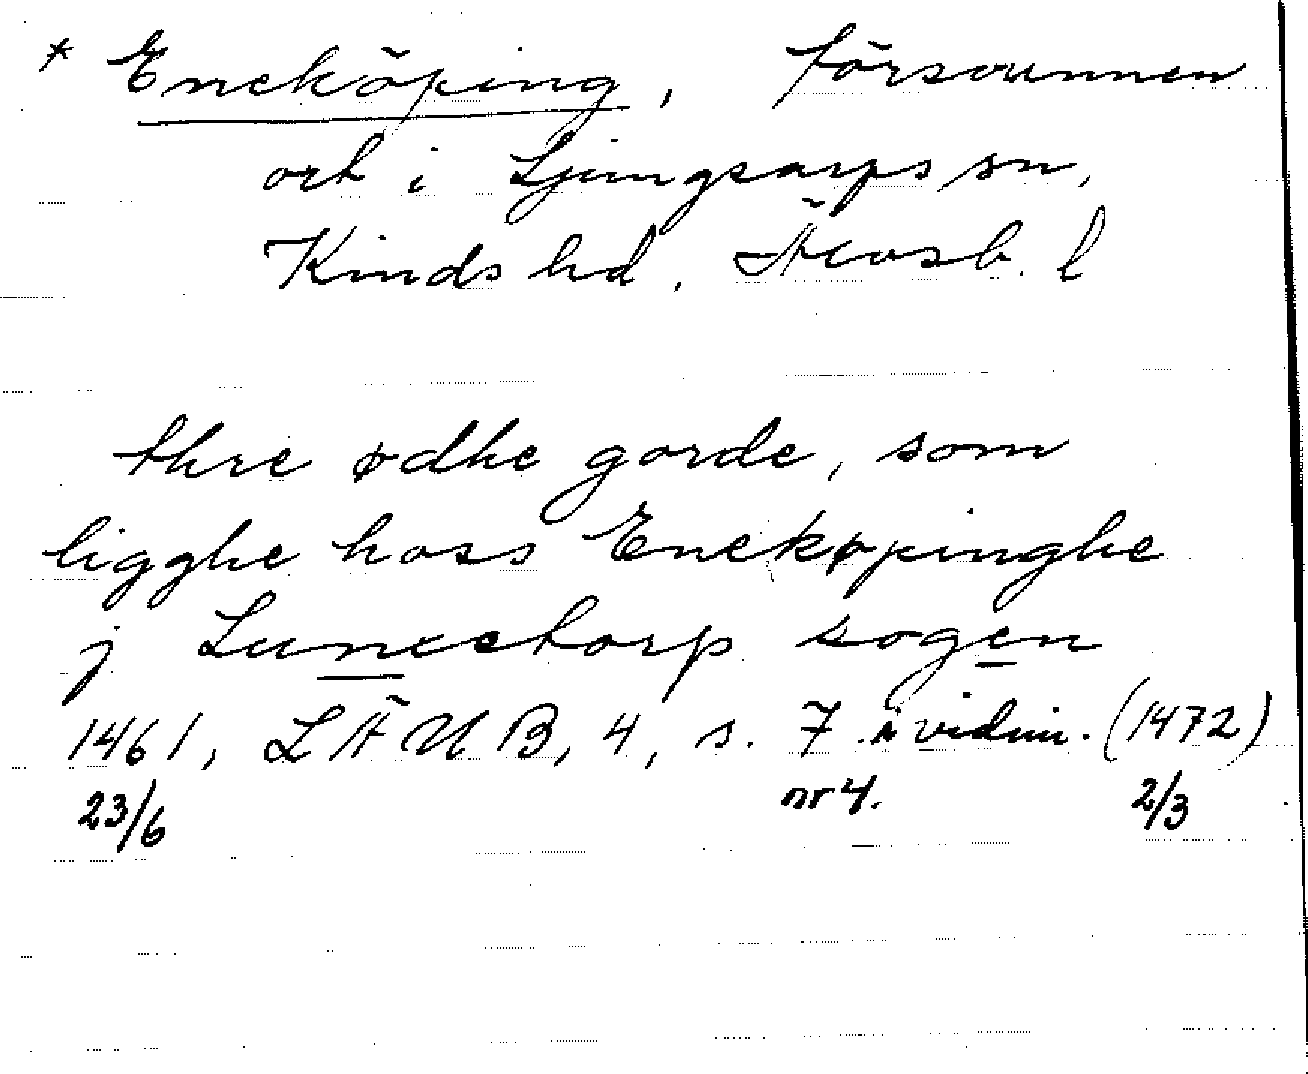 * Eneköping, försvunnen
ort i Ljungsarps sn,
Kinds hd, Älvsb. l
thre ødhe gorde, som
ligghe hoss Enekøpinghe
j Lunxetorp sogen
1461, LÄUB, 4, s. 7 i vidim. (1472)
23/6 nr 4. 2/3